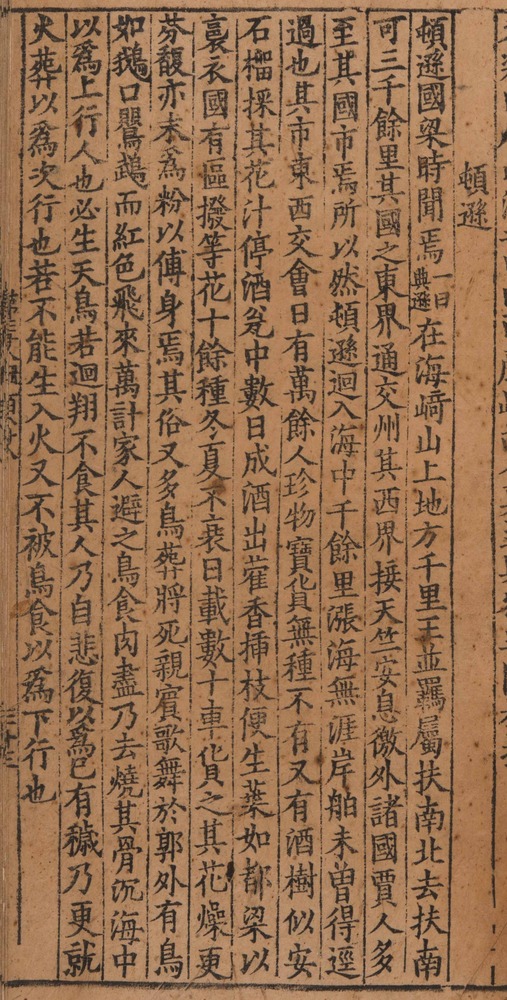 頓遜
頓遜國梁時聞焉一曰典遜在海崎山上地方千里王並羈屬扶南北去扶南
可三千餘里其國之東界通交州其西界接天竺安息徼外諸國賈人多
至其國市焉所以然頓遜迴入海中千餘里漲海無涯岸舶未曾得逕
過也其市東西交會日有萬餘人珍物寶貨無種不有又有酒樹似安
石榴採其花汁停酒瓮中數日成酒出藿香揷枝便生葉如都梁以
裛衣國有區撥等花十餘種冬夏不衰日載數十車貨之其花燥更
芬馥亦末爲粉以傅身焉其俗又多鳥葬將死親賓歌舞於郭外有鳥
如鵝口鸚鵡而紅色飛來萬計家人避之鳥食肉盡乃去燒其骨沉海中
以爲上行人也必生天鳥若迴翔不食其人乃自悲復以爲己有穢乃更就
火葬以爲次行也若不能生入火又不被鳥食以爲下行也